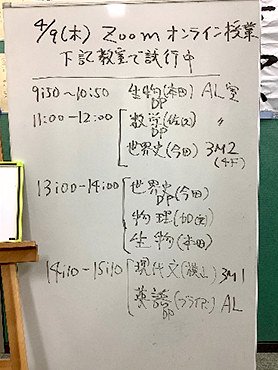 4/9(木) Zoom オンライン授業
下記教室で試行中
9:50〜10:50 生物(本田) AL室
DP
11:00-12:00 数学(佐図) 〃
DP
世界史(今田) 3M2
(4F)
13:00-14:00 世界史(今田)
DP
物理(加図)
生物(本田)
14:10-15:10 現代文 3M1
英語(ブライアン) AL
DP